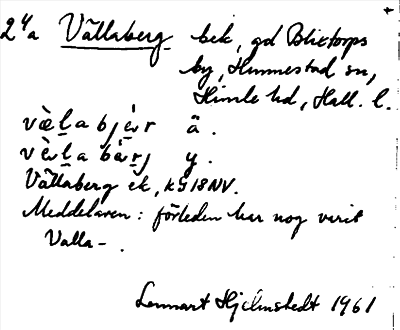 2 4a Vållaberg bek, gd Blixtorps
by, Hunnestad sn,
Himle hd, Hall. l.
ä.
y.
Vållaberg ek, KG18NV.
Meddelaren: förleden har nog varit
Valla-.
Lennart Hjelmstedt 1961